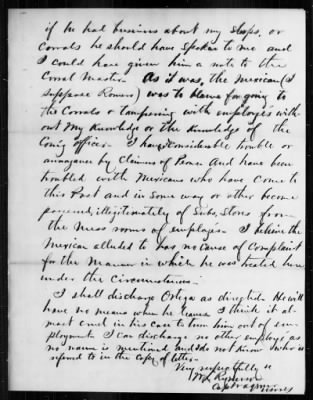 if he had business about my shops, or
Corrals he should have spoken to me and
I could have given him a note to the
Corral Master. As it was, the Mexican (I
suppose Romero) was to blame for going to
the Corrals & tampering with employe's with-
out My Knowledge or the Knowledge of the
Comg officer. I have considerable trouble or
annoyance by Claims of Romero And have been
troubled with Mexicans who have Come to
this Post and in some way or other become
possessed, illegitimately of Subs. Stores from
the Mess rooms of employe's. I believe the
Mexican alluded to has no Cause of Complaint
for the Manner in which he was treated here
under the Circumstances.
I shall discharge Ortega as directed. He will
have no means when he leaves. I think it al-
most cruel in his case to turn him out of em-
ployment. I can discharge no other employe as
no name is mentioned and do not know who is
referred to in the Copy of letter.
Very respectfully